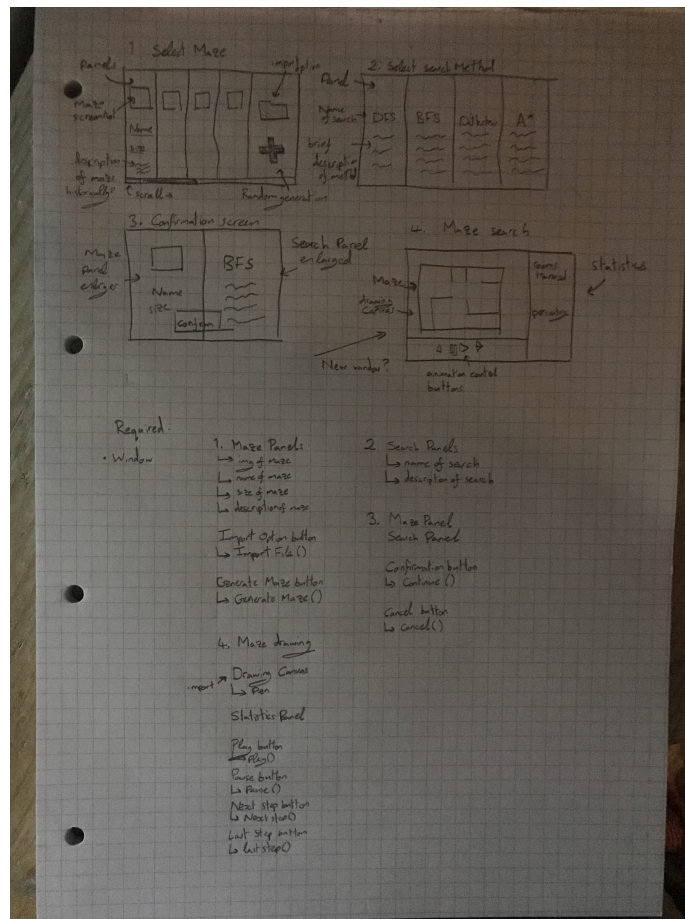 1. Select Maze
Panels
import option
Maze
screenshot
Name
size
description
of maze
historically?
scroll
Random generation
2. Select search Method
Panel
Name
of search
DFS
BFS
Dijkstra
A*
brief
description
of method
3. Confirmation screen
Maze
Panel
enlarged
Name
size
BFS
confirm
Search Panel
enlarged
4. Maze search
Maze
drawing
canvas
statistics
New window?
animation control
buttons
Required:
• Window
1. Maze Panels
↳ img of maze
↳ name of maze
↳ size of maze
↳ description of maze
Import Option button
↳ Import File()
Generate Maze button
↳ Generate Maze()
2 Search Panels
↳ name of search
↳ description of search
3. Maze Panel
Search Panel
Confirmation button
↳ Continue()
Cancel button
↳ cancel()
4. Maze drawing
import
Drawing Canvas
↳ Pen
Statistics Panel
Play button
↳ Play()
Pause button
↳ Pause()
Next step button
↳ Next step()
Last step button
↳ last step()